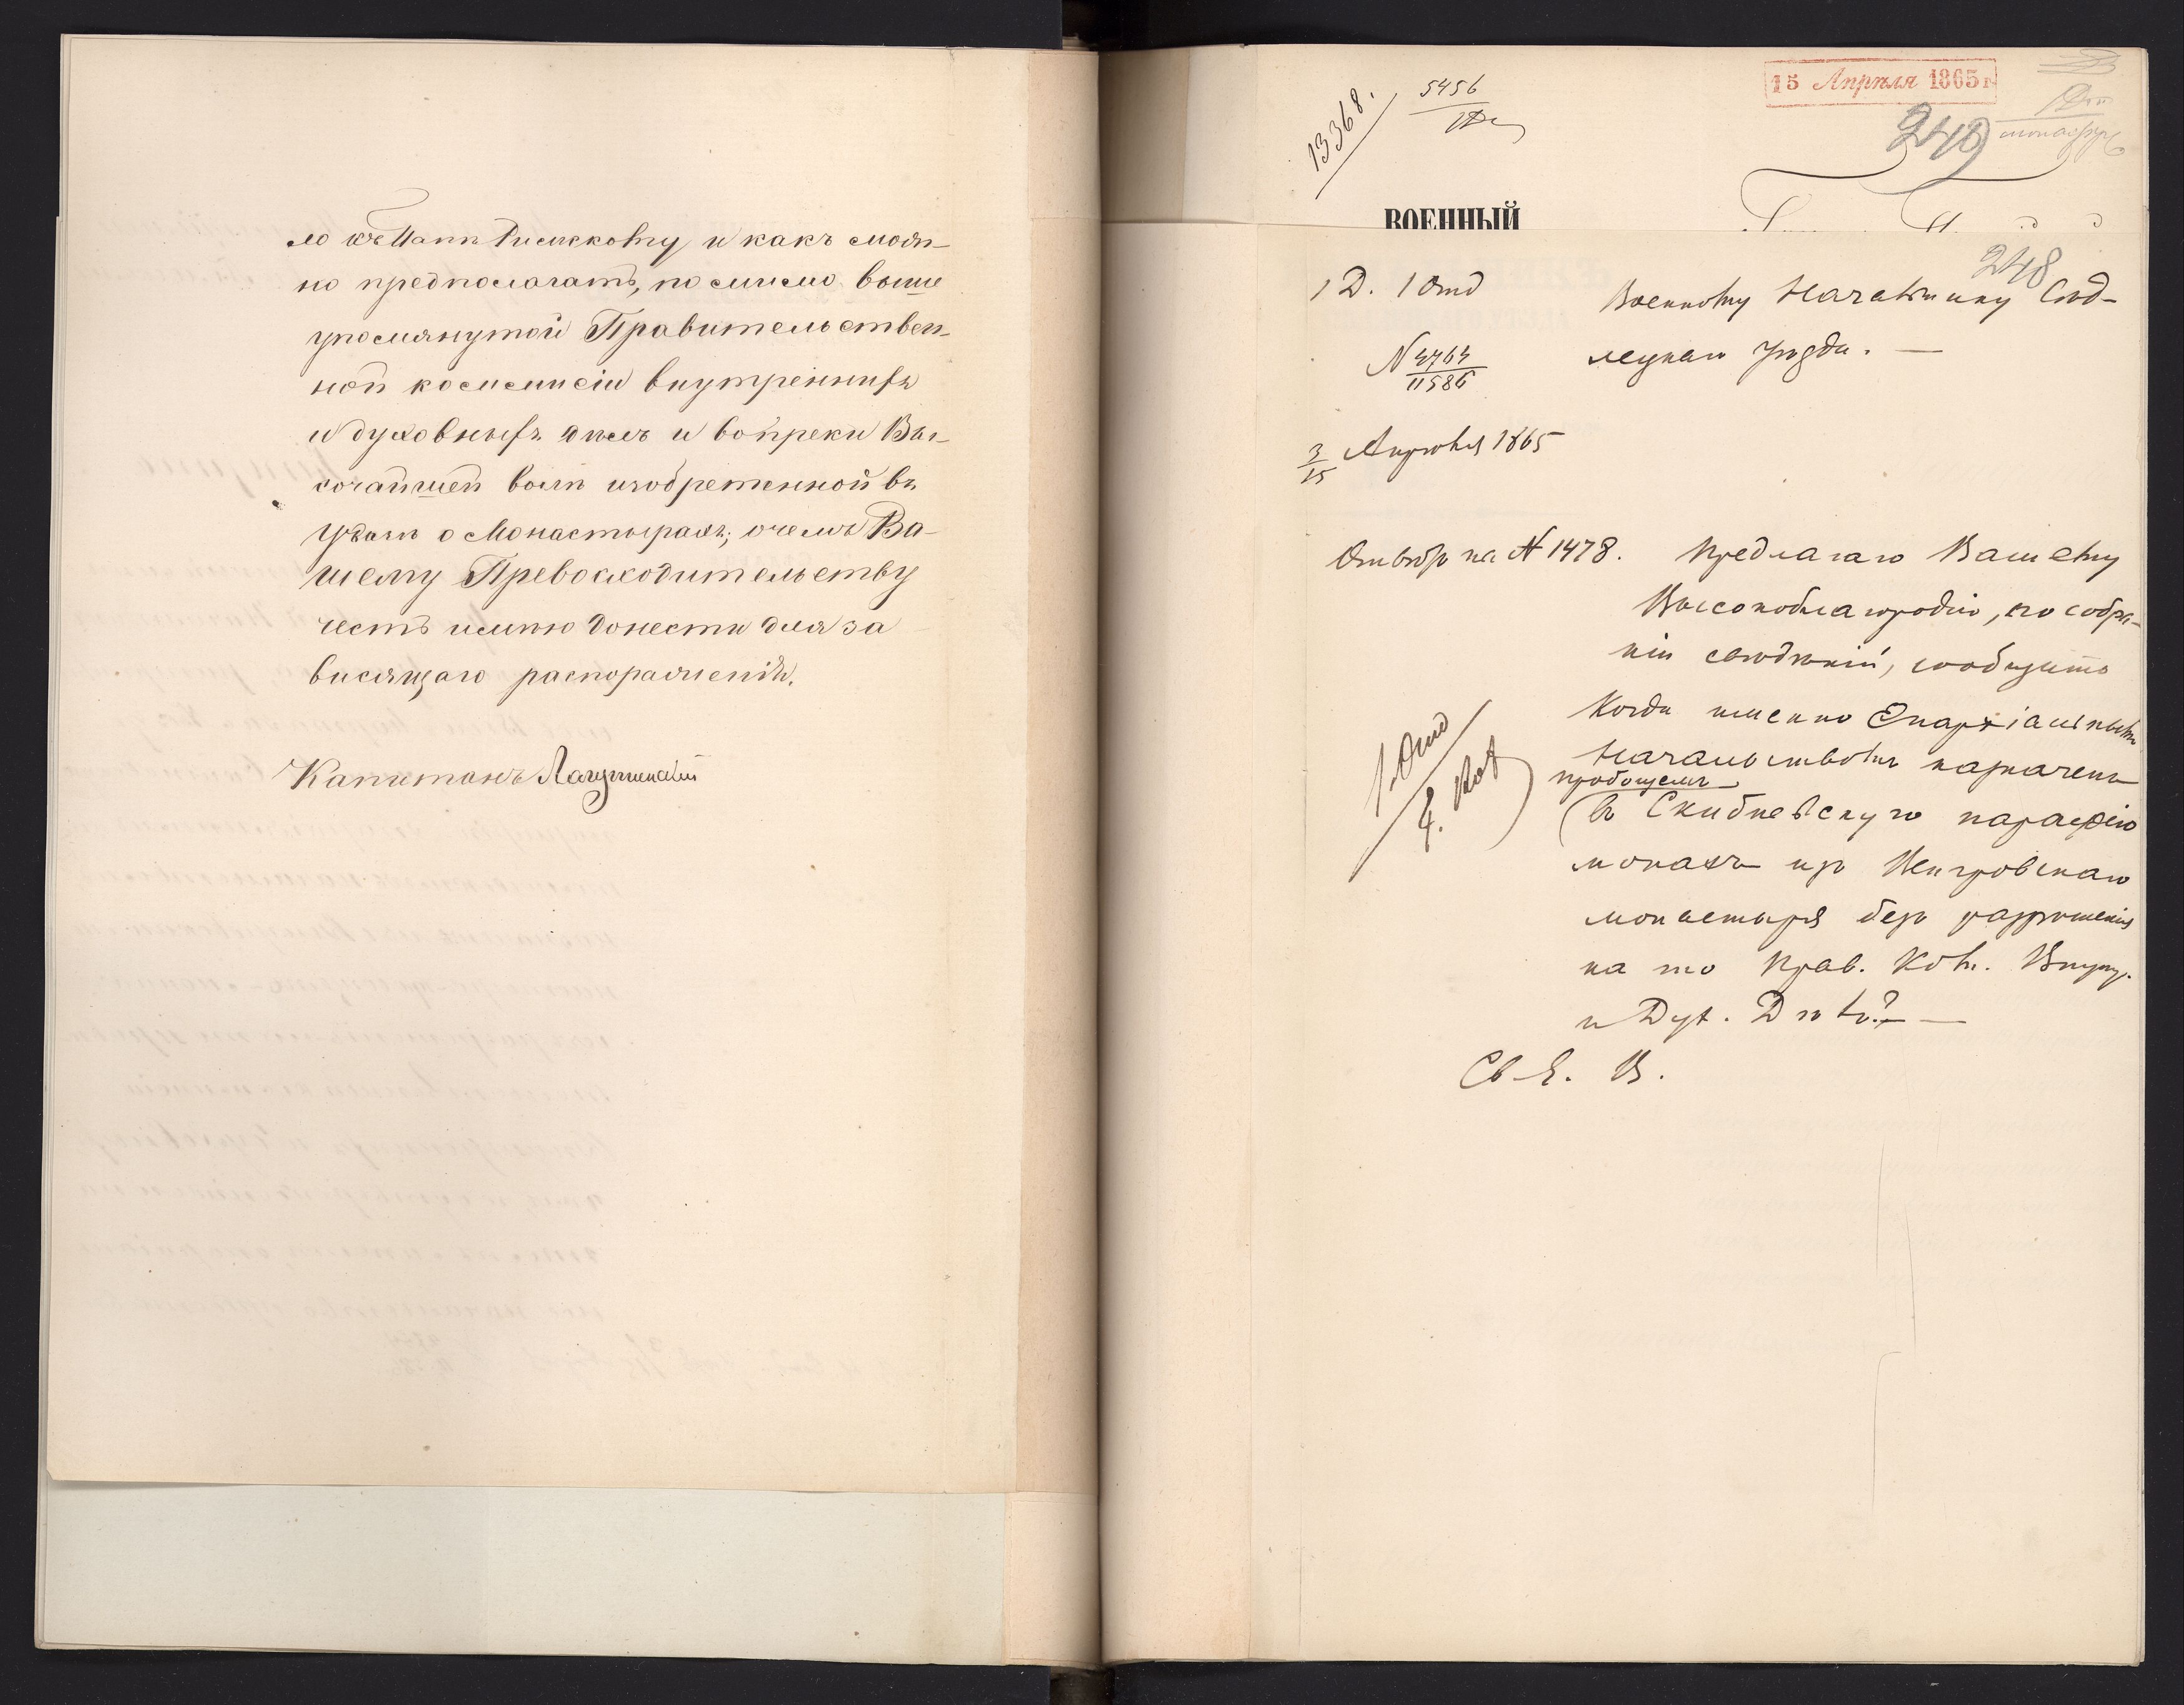 и какъ мож-
но предполагать, помимо выше
упомянутой Правительствен-
ной коммисіи внутреннихъ
и духовныхъ дѣлъ и вопреки Вы-
сочайшей воли изобретенной въ
Указѣ о Монастыряхъ; о чемъ Ва-
шему Превосходительству
честь имѣю донести для за
висящаго распоряженія.
Капитанъ
13368.
5456
15 Апрѣля 1865 г.
249
ВОЕННЫЙ
248
1 Д. 1 Отд
Военному Начальнику Сѣд-
лецкаго уѣзда. —
N 4764
11586
3/15 Апрѣля 1865
Отвѣтъ на N 1478. Предлагаю Вашему
Высокоблагородію, по собра-
ніи свѣдѣній, сообщить
когда именно Епархіальнымъ
Начальствомъ назначенъ
пробощемъ
въ Скибневскую парафію
монахъ изъ Венгровскаго
монастыря безъ разрѣшенія
на то Прав. Ком. Внутр.
и Дух. Дѣлъ? —
1. Отд
Св. Е. В.